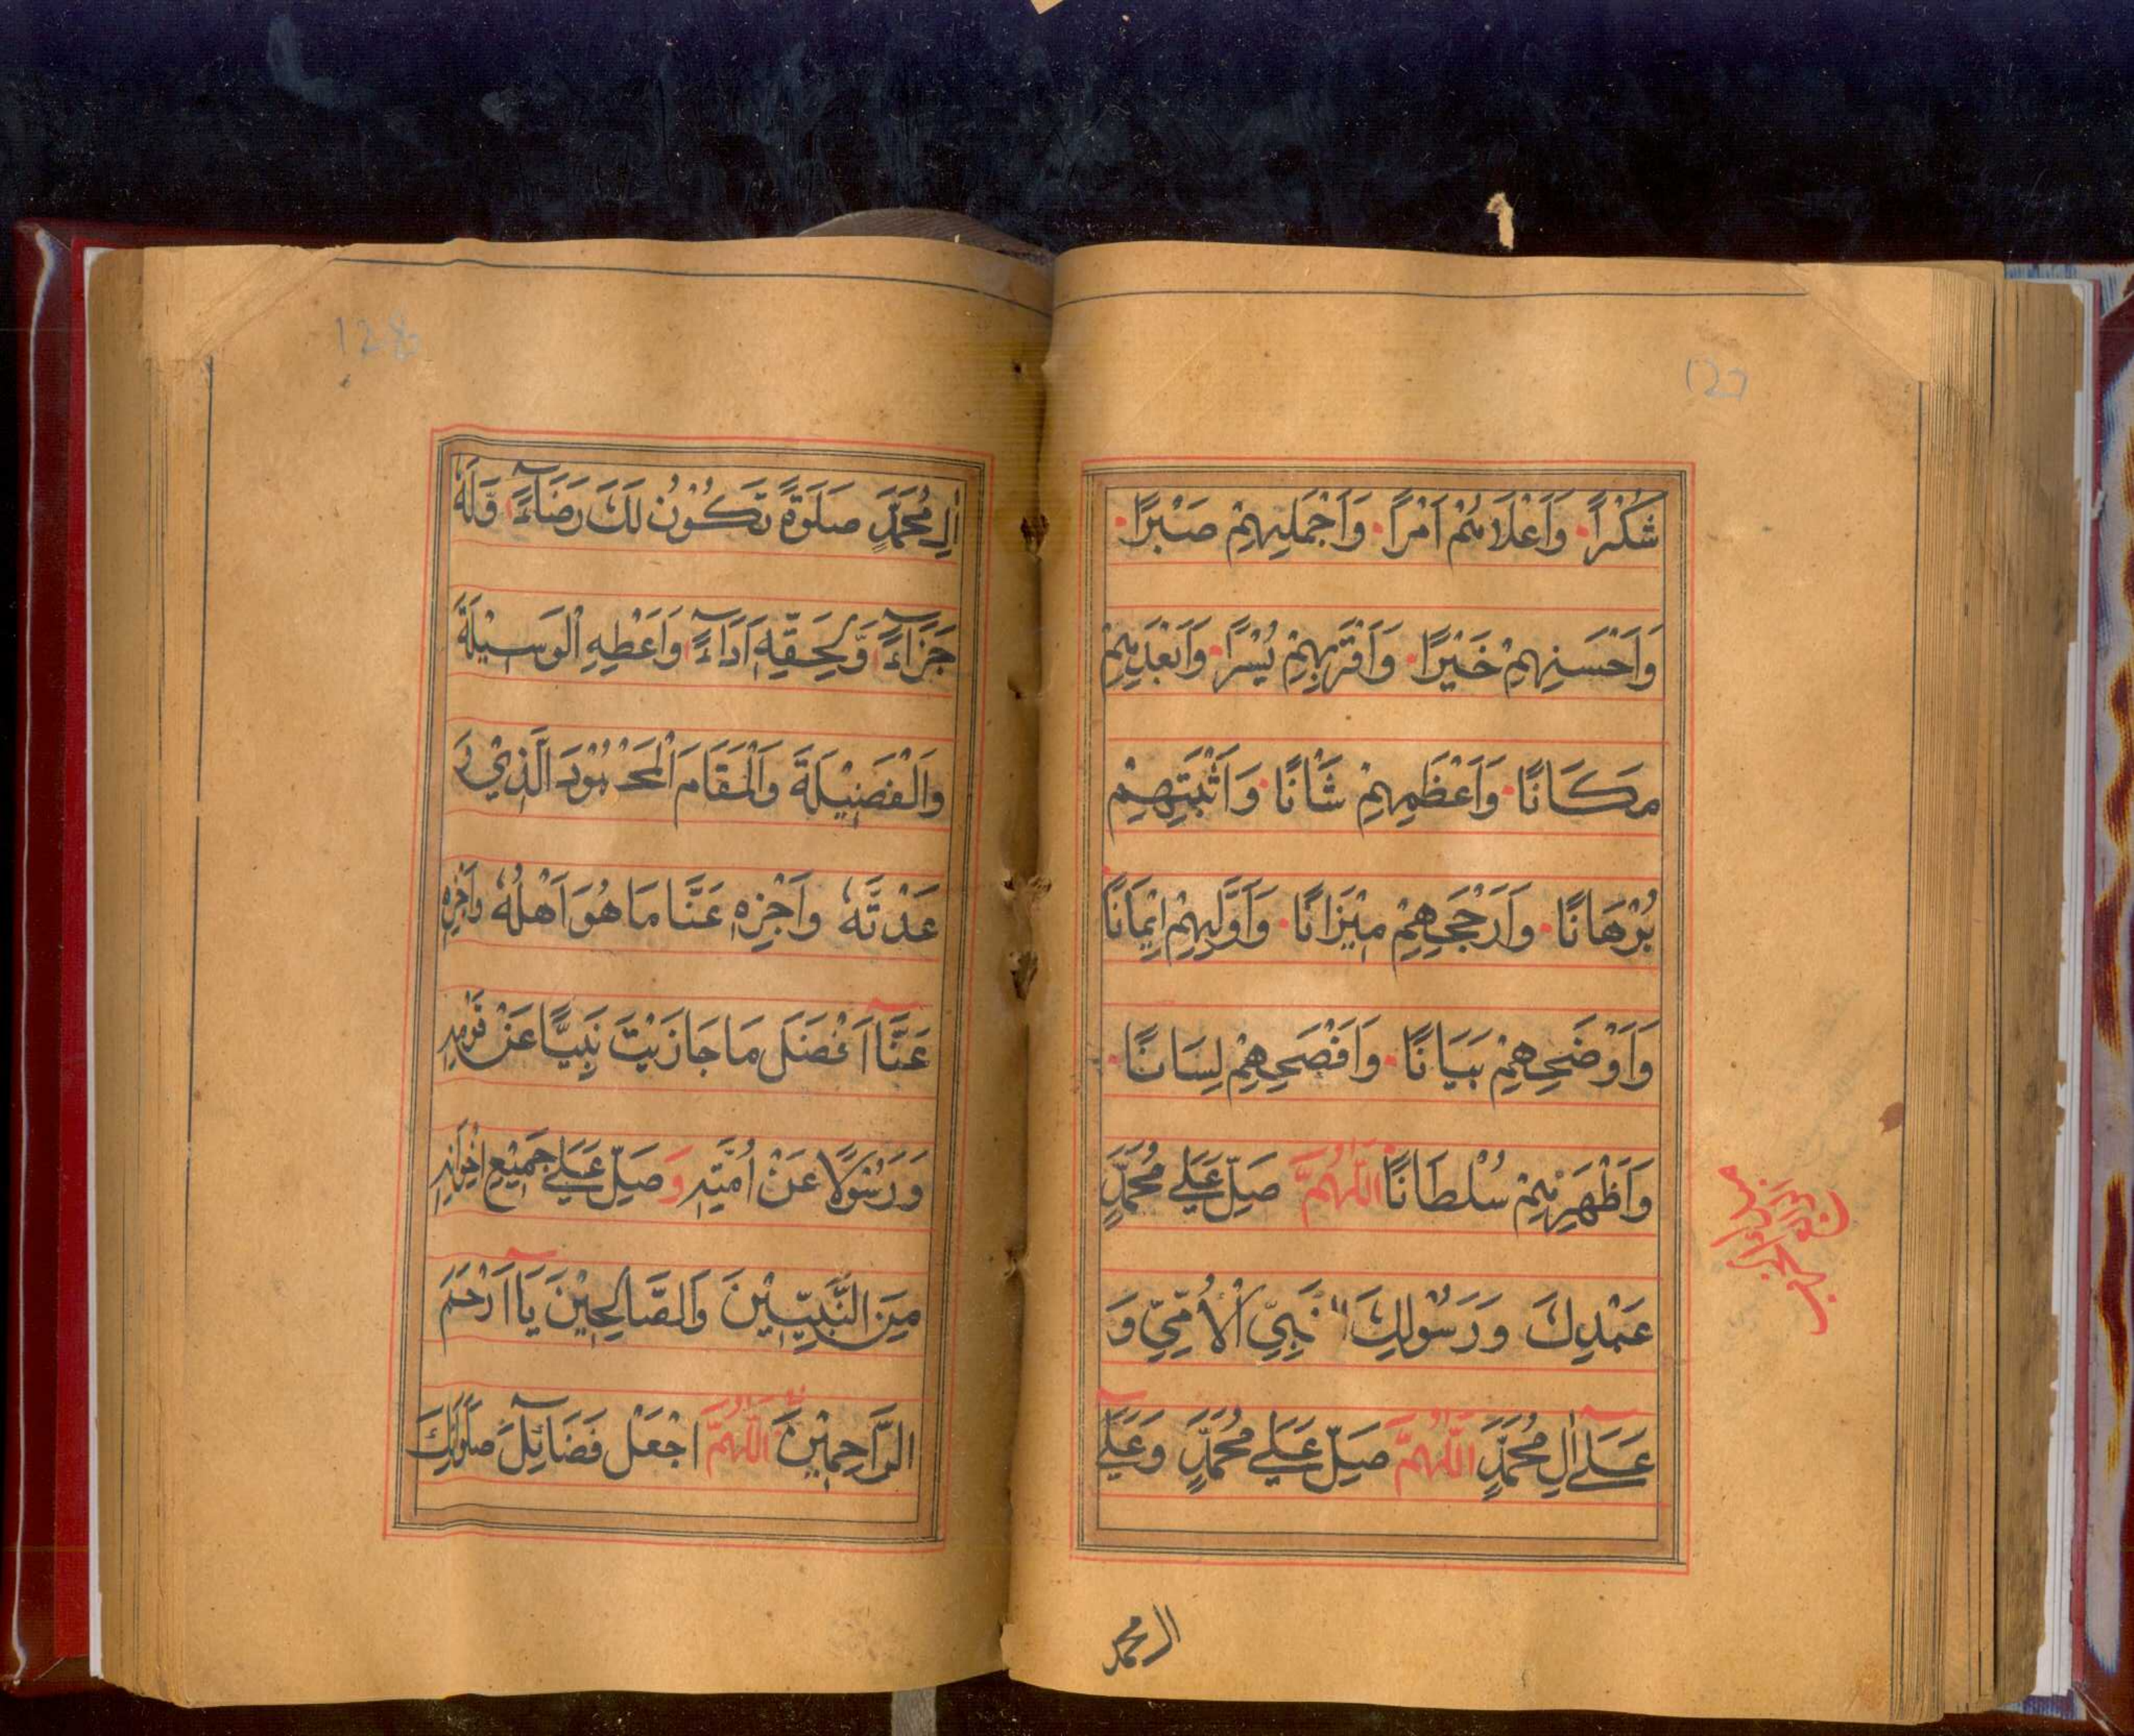 127
شُكْرًا وَاَعْلَاهُمْ اَمْرًا وَاَجْمَلِهِمْ صَبْرًا
وَاَحْسَنِهِمْ خَيْرًا وَاَقْرَبِهِمْ يُسْرًا وَاَبْعَدِهِمْ
مَكَانًا وَاَعْظَمِهِمْ شَانًا وَاَثْبَتِهِمْ
بُرْهَانًا وَاَرْجَحِهِمْ مِيْزَانًا وَاَوَّلِهِمْ اِيْمَانًا
وَاَوْضَحِهِمْ بَيَانًا وَاَفْصَحِهِمْ لِسَانًا
وَاَظْهَرِهِمْ سُلْطَانًا اَللّٰهُمَّ صَلِّ عَلٰي مُحَمَّدٍ
عَبْدِكَ وَرَسُوْلِكَ النَّبِيِّ الْاُمِّيِّ وَ
عَلٰٓي اٰلِ مُحَمَّدٍ اَللّٰهُمَّ صَلِّ عَلٰي مُحَمَّدٍ وَعَلٰٓي
ال محمد
128
اٰلِ مُحَمَّدٍ صَلٰوةً تَكُوْنُ لَكَ رَضَآءً وَّلَهٗ
جَزَآءً وَّلِحَقِّهٖ اَدَآءً وَاَعْطِهِ الْوَسِيْلَةَ
وَالْفَضِيْلَةَ وَالْمَقَامَ الْمَحْمُوْدَ الَّذِيْ وَ
عَدْتَّهٗ وَاَجْزِهٖ عَنَّا مَا هُوَ اَهْلُهٗ وَاَجْزِهٖ
عَنَّا اَفْضَلَ مَا جَازَيْتَ نَبِيًّا عَنْ قَوْمِهٖ
وَرَسُوْلًا عَنْ اُمَّتِهٖ وَصَلِّ عَلٰي جَمِيْعِ اِخْوَانِهٖ
مِنَ النَّبِيِّيْنَ وَالصَّالِحِيْنَ يَا اَرْحَمَ
الرَّاحِمِيْنَ اَللّٰهُمَّ اجْعَلْ فَضَآئِلَ صَلَوَاتِكَ